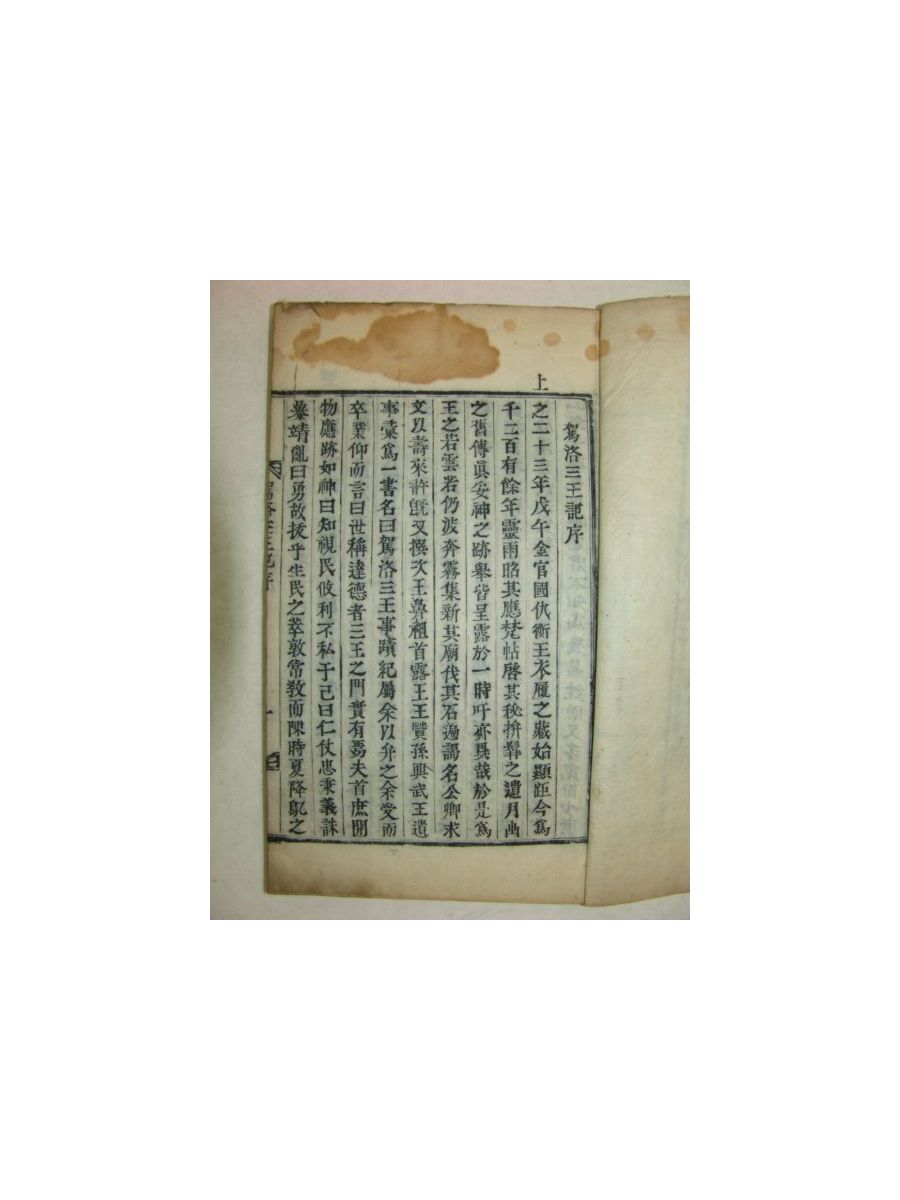 駕洛三王記序
上
之二十三年戊午金官國仇衡王衣履之藏始顯距今爲
千二百有餘年靈雨昭其應梵帖啓其秘拚髹之遺月幽
之舊傳眞妥神之跡擧皆呈露於一時吁亦異哉於是爲
王之若雲若仍波奔霧集新其廟伐其石遍謁名公卿求
文以壽來許旣又撰次王鼻祖首露王王賢孫興武王遺
事彙爲一書名曰駕洛三王事蹟紀屬余以弁之余受而
卒業仰而言曰世稱達德者三王之門實有焉夫首庶開
物應跡如神曰知視民攸利不私于己曰仁仗忠秉義誅
暴靖亂曰勇故拔乎生民之萃敦常敎而陳時夏降亂之
駕洛三王記序
一